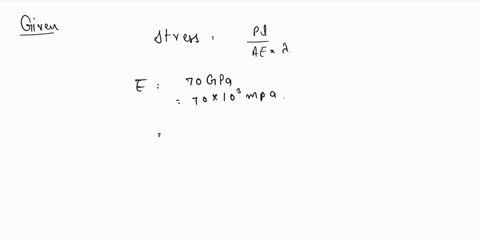 Given
Stress : Pl / AE × λ
E : 70 GPa
: 70 × 10³ mpa.
: